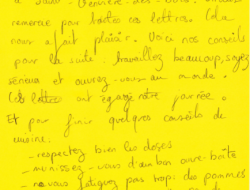 remercie pour toutes vos lettres. Cela
nous a fait plaisir. Voici nos conseils
pour la suite : travaillez beaucoup, soyez
sérieux et ouvrez-vous au monde.
Ces lettres ont égayé notre journée.
Et pour finir quelques conseils de
cuisine :
- respectez bien les doses
- munissez-vous d'un bon ouvre-boîte
- ne vous fatiguez pas trop : des pommes